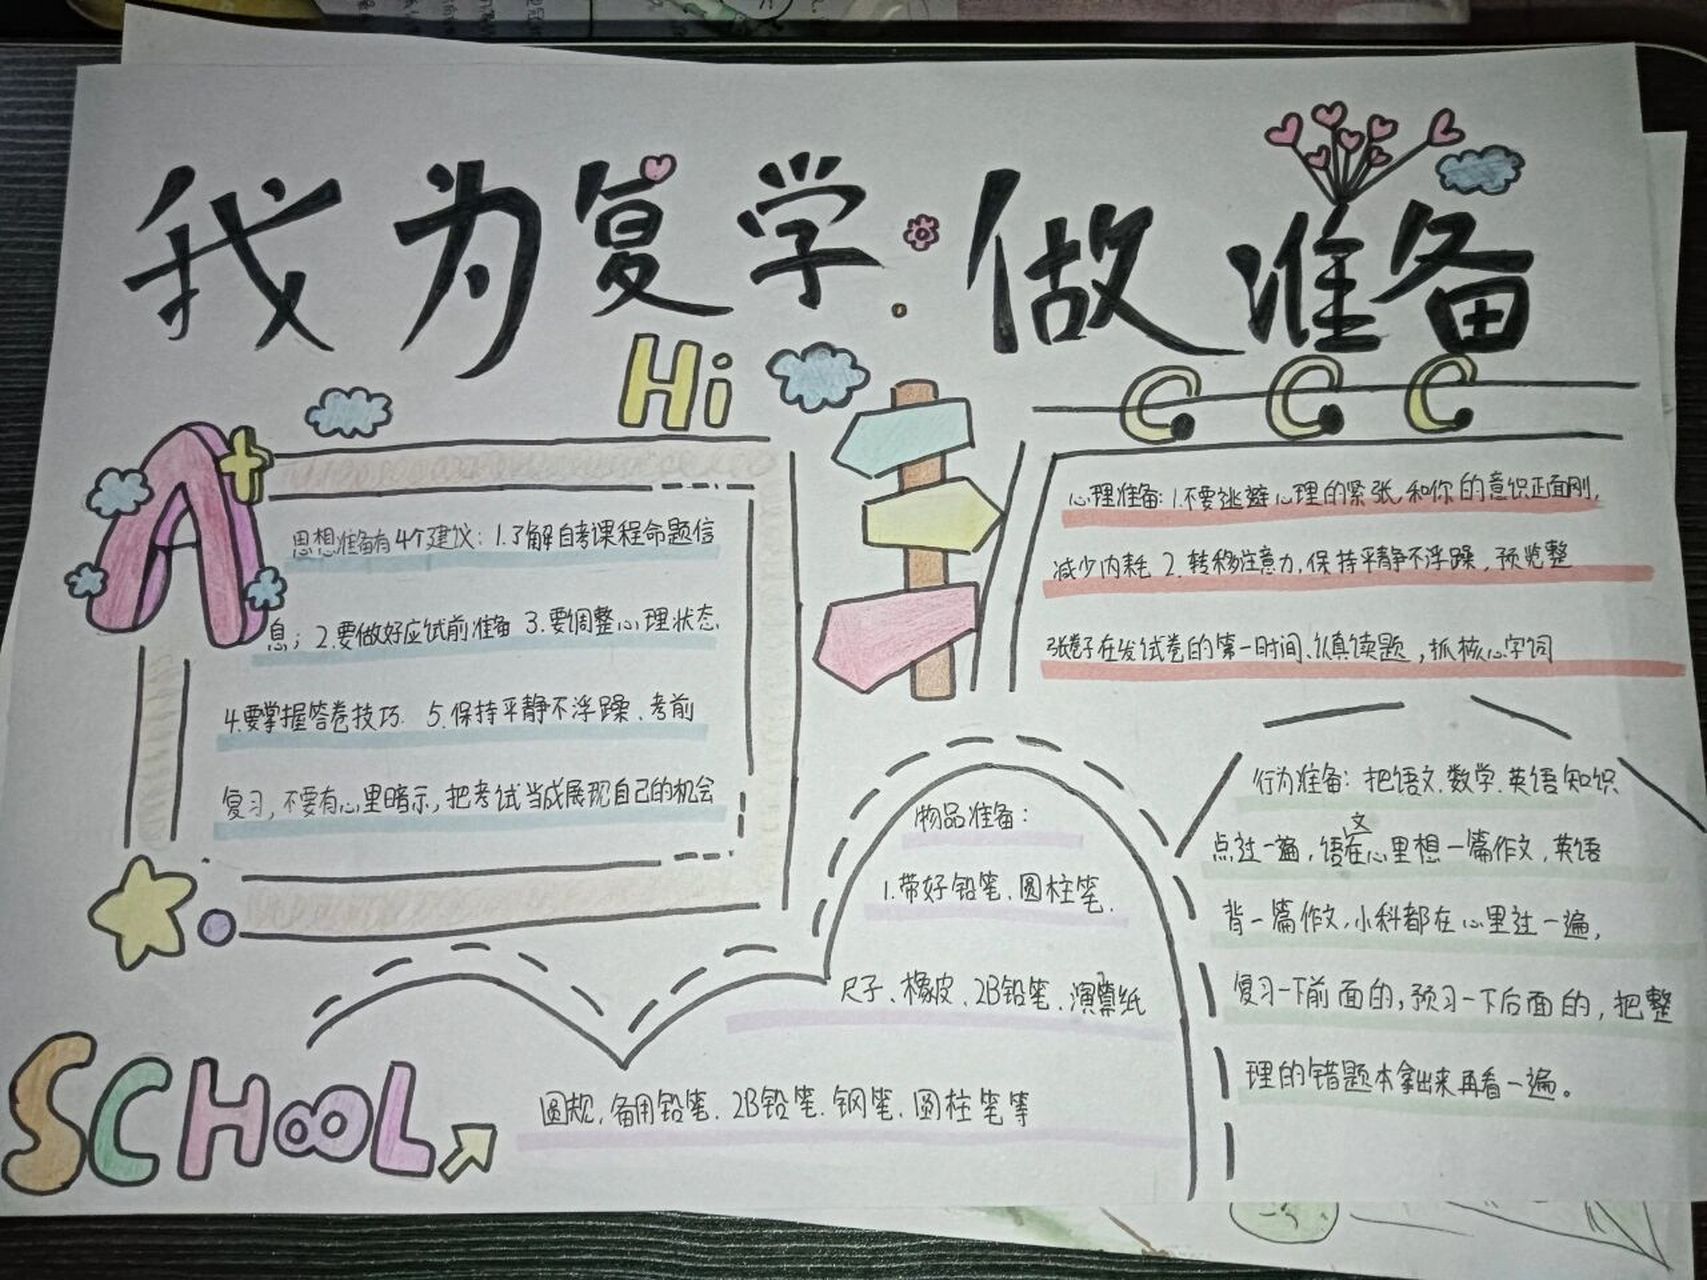 我为复学做准备
Hi
A+
思想准备有4个建议：1.了解自考课程命题信
息；2.要做好应试前准备 3.要调整心理状态.
4.要掌握答卷技巧. 5.保持平静不浮躁、考前
复习，不要有心里暗示，把考试当成展现自己的机会
心理准备：1.不要逃避心理的紧张，和你的意识正面刚，
减少内耗 2.转移注意力，保持平静不浮躁，预览整
张卷子在发试卷的第一时间、认真读题，抓核心字词
物品准备：
1.带好铅笔、圆柱笔、
尺子、橡皮、2B铅笔、演草纸
圆规，备用铅笔、2B铅笔、钢笔、圆柱笔等
行为准备：把语文、数学、英语知识
点过一遍，语文在心里想一篇作文，英语
背一篇作文，小科都在心里过一遍，
复习一下前面的，预习一下后面的，把整
理的错题本拿出来再看一遍。
SCHOOL